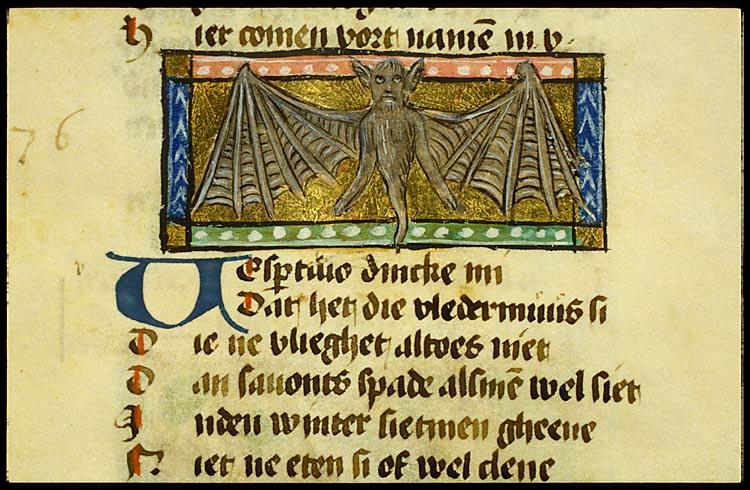 H ier comen vort namē in v
76
Vespertilio dincke mi
Dat het die vledermuus si
D ie ne vlieghet altoes niet
D an sauonts spade alsmē wel siet
I nden winter sietmen gheene
N iet ne eten si of wel clene